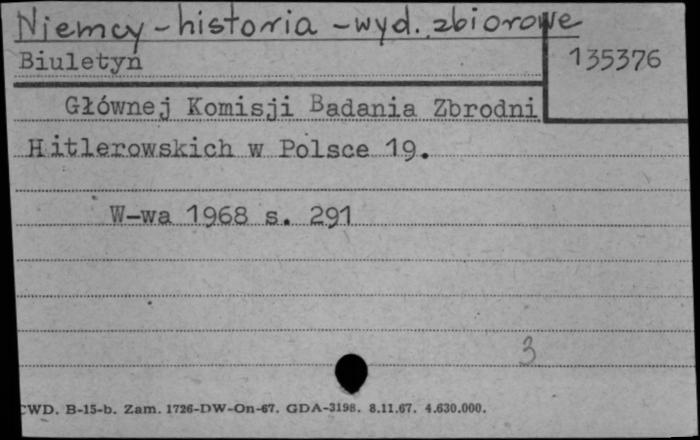 Niemcy - historia - wyd. zbiorowe
Biuletyn
135376
Głównej Komisji Badania Zbrodni
Hitlerowskich w Polsce 19.
W-wa 1968 s. 291
3
CWD. B-15-b. Zam. 1726-DW-On-67. GDA-3198. 8.11.67. 4.630.000.